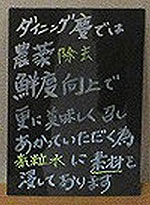 ダイニング慶では
農薬除去
鮮度向上で
更に美味しく召し
あがっていただく為
素粒水に素材を
浸しております